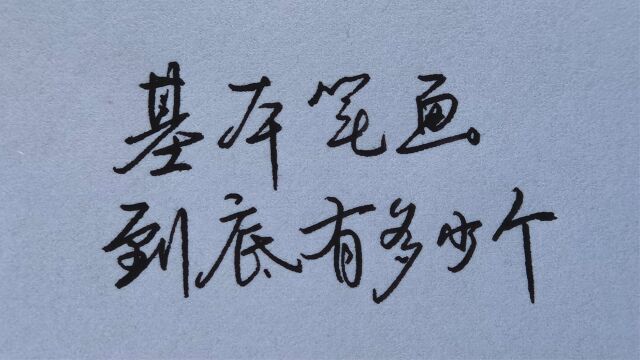 基本笔画
到底有多少个